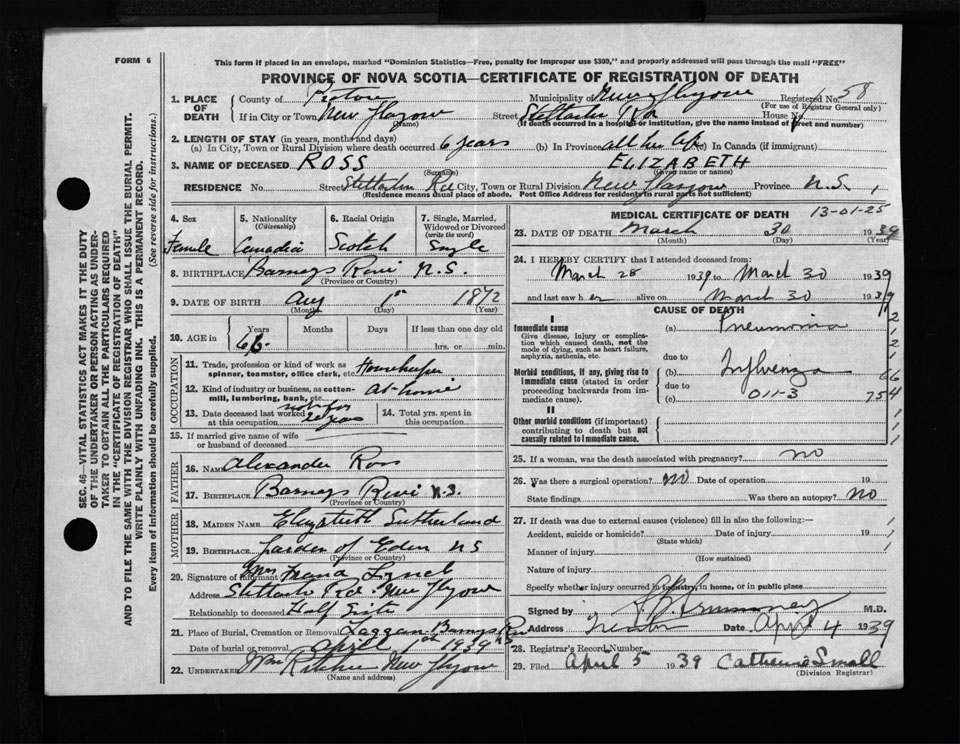 FORM 6
This form if placed in an envelope, marked "Dominion Statistics—Free, penalty for improper use $300," and properly addressed will pass through the mail "FREE"
PROVINCE OF NOVA SCOTIA—CERTIFICATE OF REGISTRATION OF DEATH
1. PLACE OF DEATH { County of Pictou Municipality of New Glasgow Registered No. 58
(For use of Registrar General only)
If in City or Town New Glasgow Street Stellarton Rd House No.
(Name) (If death occurred in a hospital or institution, give the name instead of street and number)
2. LENGTH OF STAY (in years, months and days)
(a) In City, Town or Rural Division where death occurred 6 years (b) In Province all her life (c) In Canada (if immigrant)
3. NAME OF DECEASED ROSS ELIZABETH
(Surname) (Given name or names)
RESIDENCE No. Street Stellarton Rd City, Town or Rural Division New Glasgow Province N.S.
(Residence means usual place of abode. Post Office Address for residents in rural parts not sufficient)
4. Sex Female
5. Nationality (Citizenship) Canadian
6. Racial Origin Scotch
7. Single, Married, Widowed or Divorced (write the word) Single
8. BIRTHPLACE Barneys River N.S.
(Province or Country)
9. DATE OF BIRTH Aug 1st 1872
(Month) (Day)
10. AGE in { Years Months Days If less than one day old
66 hrs. or min.
OCCUPATION
11. Trade, profession or kind of work as spinner, teamster, office clerk, etc. Housekeeper
12. Kind of industry or business, as cotton-mill, lumbering, bank, etc. At home
13. Date deceased last worked at this occupation not for years
14. Total yrs. spent in this occupation
15. If married give name of wife or husband of deceased
FATHER
16. NAME Alexander Ross
17. BIRTHPLACE Barneys River N.S.
(Province or Country)
MOTHER
18. MAIDEN NAME Elizabeth Sutherland
19. BIRTHPLACE Garden of Eden N S
(Province or Country)
20. Signature of Informant Mrs Lynch
Address Stellarton Rd. New Glasgow
Relationship to deceased Half Sister
21. Place of Burial, Cremation or Removal Laggan Barneys River NS
Date of burial or removal April 1st 1939
22. UNDERTAKER Wm New Glasgow
(Name and address)
MEDICAL CERTIFICATE OF DEATH 13-01-25
23. DATE OF DEATH March 30 1939
(Month) (Day) (Year)
24. I HEREBY CERTIFY that I attended deceased from:
March 28 1939 to March 30 1939
and last saw her alive on March 30 1939
CAUSE OF DEATH
I
Immediate cause
Give disease, injury or complication which caused death, not the mode of dying, such as heart failure, asphyxia, asthenia, etc.
(a) Pneumonia
due to
Morbid conditions, if any, giving rise to immediate cause (stated in order proceeding backwards from immediate cause).
(b) Influenza
due to
(c) 011-3
II
Other morbid conditions (if important) contributing to death but not causally related to immediate cause.
25. If a woman, was the death associated with pregnancy? no
26. Was there a surgical operation? No Date of operation 19
State findings Was there an autopsy? No
27. If death was due to external causes (violence) fill in also the following:—
Accident, suicide or homicide? Date of injury 19
(State which)
Manner of injury
(How sustained)
Nature of injury
Specify whether injury occurred in industry, in home, or in public place
Signed by M.D.
Address Date April 4 1939
28. Registrar's Record Number
29. Filed April 5 1939 Catherine Small
(Division Registrar)
SEC. 46—VITAL STATISTICS ACT MAKES IT THE DUTY
OF THE UNDERTAKER OR PERSON ACTING AS UNDER-
TAKER TO OBTAIN ALL THE PARTICULARS REQUIRED
IN THE "CERTIFICATE OF REGISTRATION OF DEATH"
AND TO FILE THE SAME WITH THE DIVISION REGISTRAR WHO SHALL ISSUE THE BURIAL PERMIT.
WRITE PLAINLY WITH UNFADING INK. THIS IS A PERMANENT RECORD.
Every item of information should be carefully supplied. (See reverse side for instructions.)